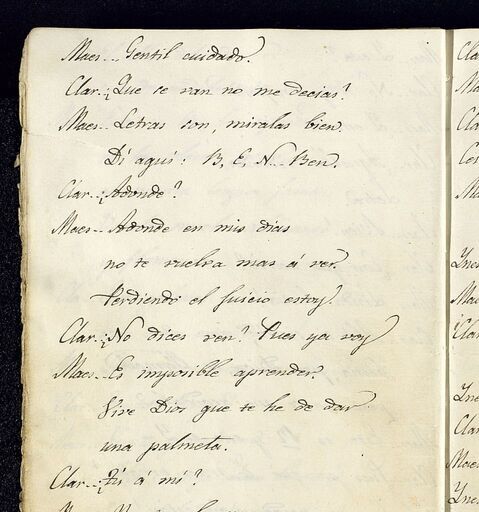 Maes... Gentil cuidado.
Clar..¿Que te van no me decias?
Maes.. Letras son, miralas bien.
Di aqui: B, E, N... Ben.
Clar..¿Adonde?
Maes.. Adonde en mis dias
no te vuelva mas á ver.
Perdiendo el juicio estoy.
Clar..¿No dices ven? Pues ya voy
Maes.. Es imposible aprender.
Vive Dios que te he de dar
una palmeta.
Clar..¿Tú á mi?
Cla
Ma
Cla
Ces
Ma
Ynes
Mae
Clar
Ynes
Clar
Maes
Ynes